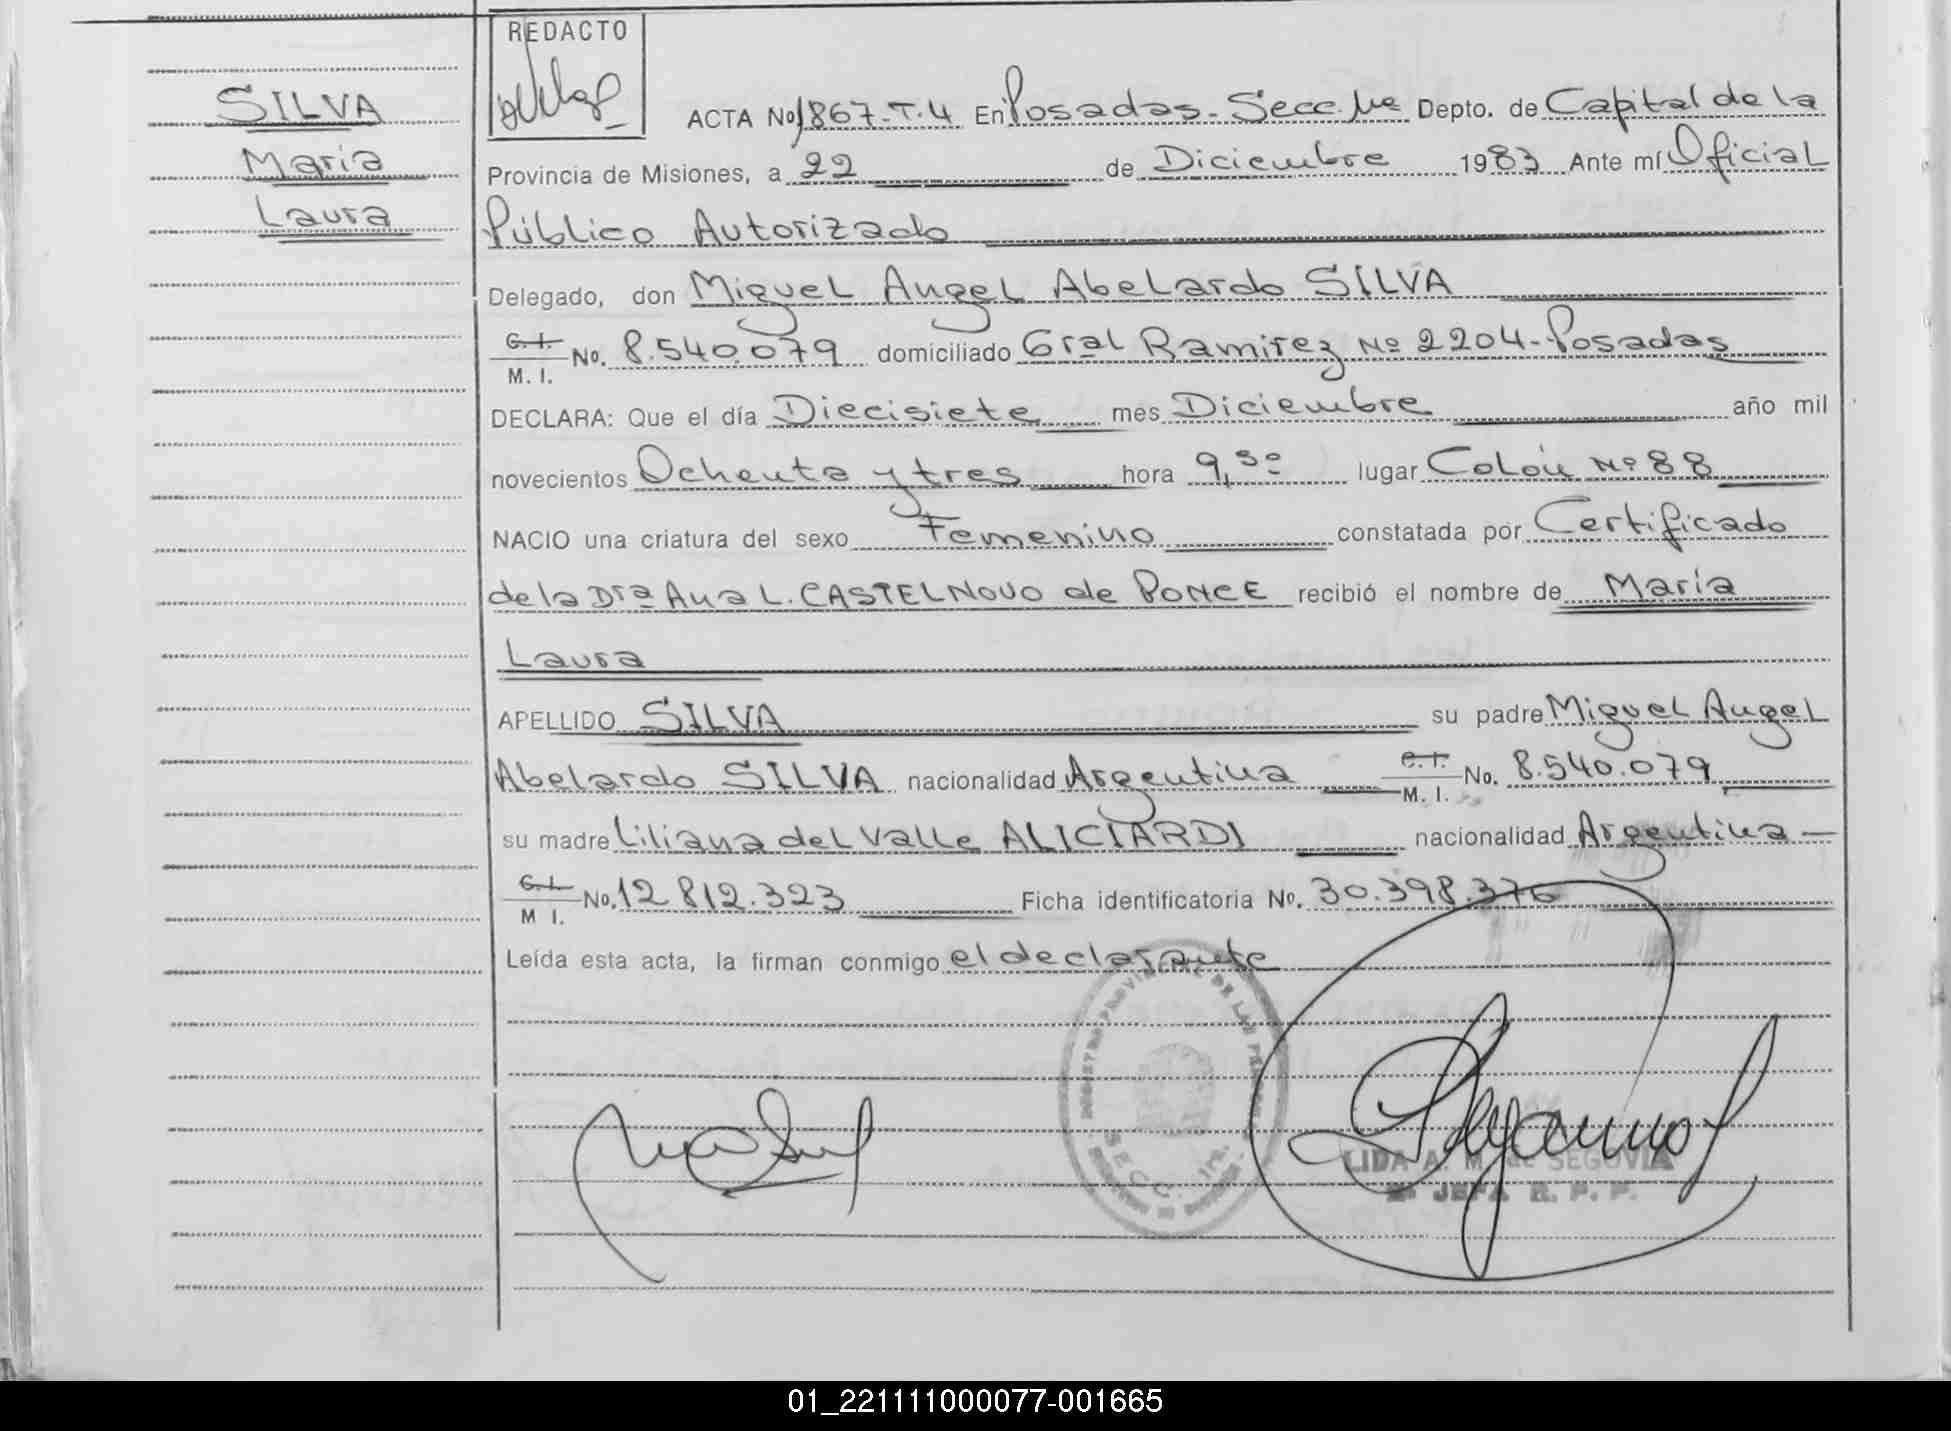 REDACTO
SILVA
María
Laura
ACTA No 1867-T.4 En Posadas-Secc. 1ra Depto. de Capital de la
Provincia de Misiones, a 22 de Diciembre 1983 Ante mí Oficial
Público Autorizado
Delegado, don Miguel Angel Abelardo SILVA
C. I.
M. I. No. 8.540.079 domiciliado Gral Ramirez Nº 2204-Posadas
DECLARA: Que el día Diecisiete mes Diciembre año mil
novecientos Ochenta y tres hora 9,30 lugar Colón Nº 88
NACIO una criatura del sexo Femenino constatada por Certificado
de la Dra Ana L. CASTELNOVO de PONCE recibió el nombre de María
Laura
APELLIDO SILVA su padre Miguel Angel
Abelardo SILVA nacionalidad Argentina C. I. M. I. No. 8.540.079
su madre Liliana del Valle ALICIARDI nacionalidad Argentina
C. I. M I. No. 12.812.323 Ficha identificatoria No. 30.398.376
Leída esta acta, la firman conmigo el declarante
REGISTRO PROVINCIAL DE LAS PERSONAS
SECC. 1ra.
LIDA A. M. de SEGOVIA
JEFA R. P. P.
01_221111000077-001665